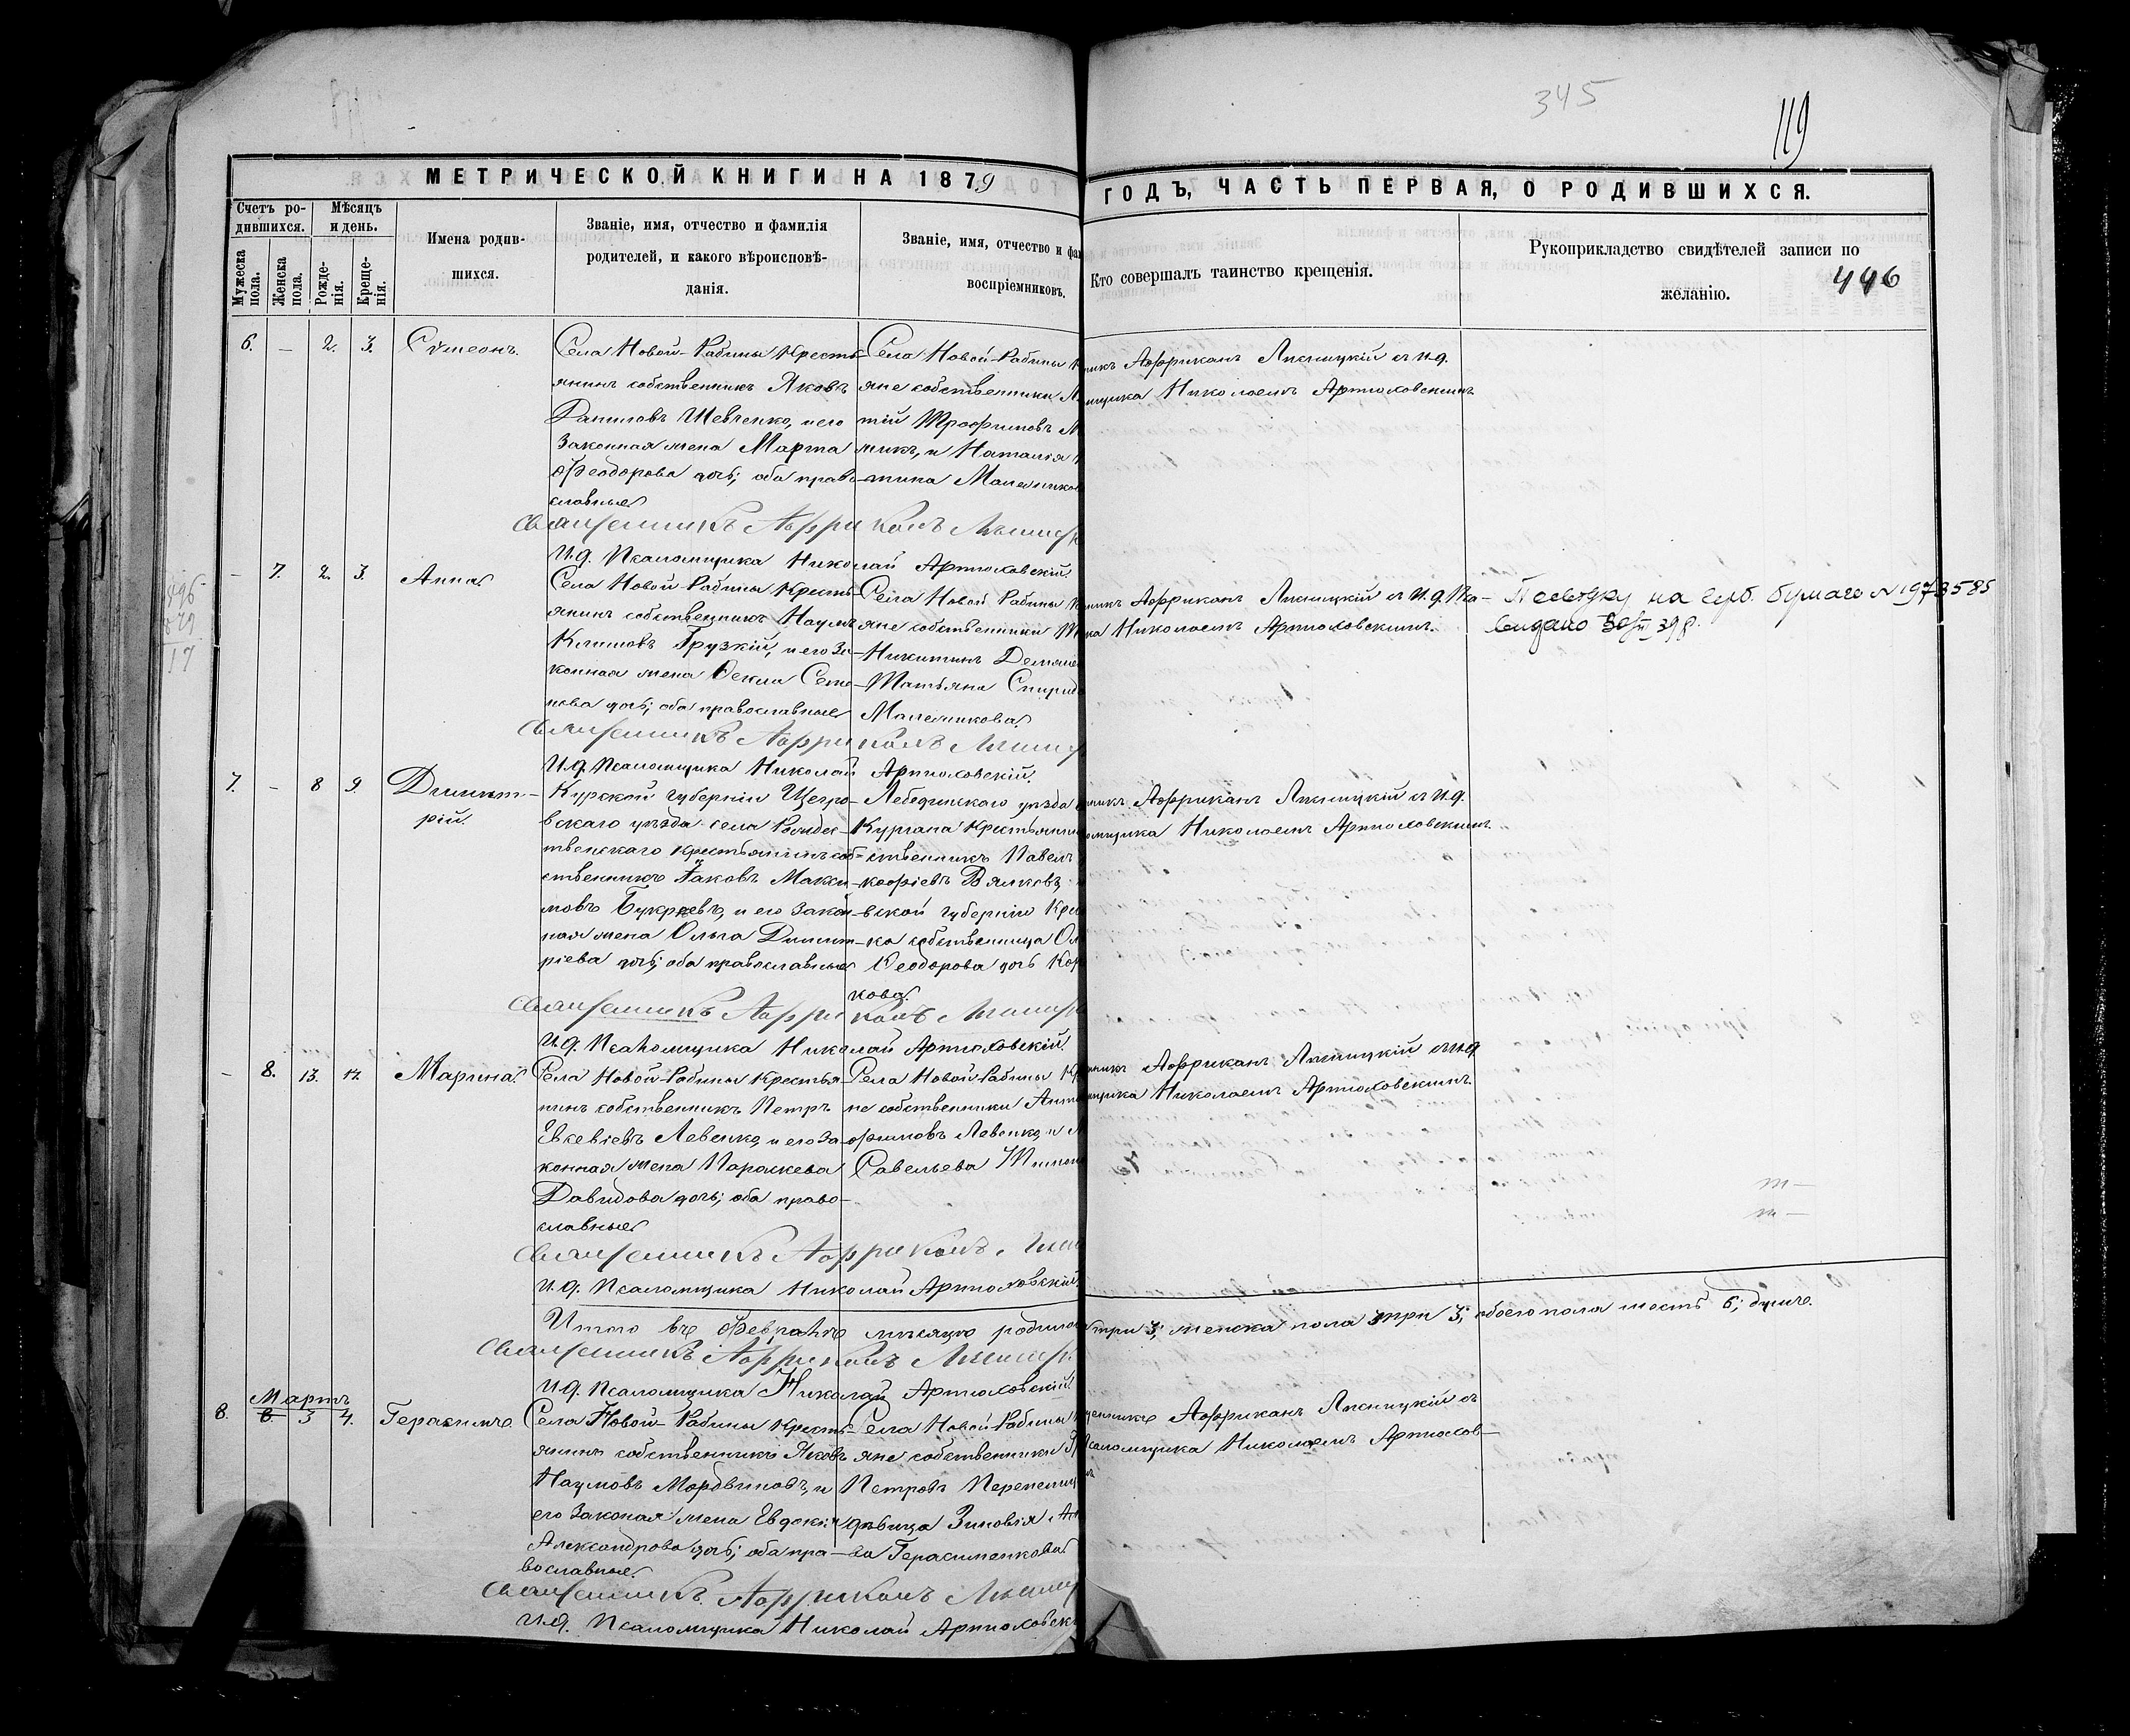 345
119
МЕТРИЧЕСКОЙ КНИГИ НА 1879
ГОДЪ, ЧАСТЬ ПЕРВАЯ, О РОДИВШИХСЯ.
Счетъ ро-
дившихся.
Мѣсяцъ
и день.
Мужеска
пола.
Женска
пола.
Рожде-
нія.
Креще-
нія.
Имена родив-
шихся.
Званіе, имя, отчество и фамилія
родителей, и какого вѣроисповѣ-
данія.
Званіе, имя, отчество и фа
воспріемниковъ.
Кто совершалъ таинство крещенія.
Рукоприкладство свидѣтелей записи по
желанію.
446
6. — 2. 3. Сѵмеонъ.
Села Новой-Рабины Кресть-
янинъ собственникъ Яковъ
Даниловъ Шевченко, и его
законная жена Марта
Феодорова дочь; оба право-
славные
Села Новой-Рабины
яне собственники
тій Трофимовъ
никъ, и Наталія
никъ Аффриканъ Лисницкій съ и.д.
мщика Николаемъ Артюховскимъ
Священникъ Аффриканъ
И.д. Псаломщика Николай Артюховскій.
— 7. 2. 3. Анна
Села Новой-Рабины Кресть-
янинъ собственникъ Наумъ
Климовъ Грузкій, и его За-
конная жена Ѳекла Семе-
нова дочь; оба православные
Села Новой Рабины
яне собственники
Никитинъ
Татьяна Спиридо
Малешкова
никъ Аффриканъ Лисницкій съ И.д. Пса-
ка Николаемъ Артюховскимъ.
на герб. бумаге № 1973585
выдано 39 р.
Священникъ Аффриканъ
И.д. Псаломщика Николай Артюховскій.
7. — 8 9. Димит-
рій.
Курской губерніи Щегро-
вскаго уѣзда села Рождес-
твенскаго крестьянинъ соб-
ственникъ Іаковъ Макси-
мовъ Букреевъ, и его закон-
ная жена Ольга Димит-
ріева дочь; оба православные
Лебединскаго уѣзда
Кургана Крестьянинъ
ственникъ Павелъ
вской губерніи Кре
ка собственница
Ѳеодорова дочь Кор
кова
никъ Аффриканъ Лисницкій съ И.д.
омщика Николаемъ Артюховскимъ.
Священникъ Аффриканъ
И.д. Псаломщика Николай Артюховскій.
— 8. 13. Марина.
Села Новой-Рабины Крестья-
нинъ собственникъ Петръ
Евсевіевъ Левенко, и его За-
конная жена Параскева
Давидова дочь; оба право-
славные
Села Новой Рабины Кр
не собственники
офимовъ Левенко, и
Савельева
никъ Аффриканъ Лисницкій съ и.д.
мщика Николаемъ Артюховскимъ.
Священникъ Аффриканъ
И.д. Псаломщика Николай Артюховскій
Итого въ Февралѣ мѣсяцѣ родило
три 3; женска пола три 3; обоего пола шесть 6; душъ.
Священникъ Аффриканъ
И.д. Псаломщика Николай Артюховскій
Мартъ
8. 3 4. Герасимъ.
Села Новой-Рабины Кресть-
янинъ собственникъ Яковъ
Наумовъ Мордвиновъ, и
его Законая жена Евдокія
Александрова дочь; оба пра-
вославные
Села Новой-Рабины
яне собственники
Петровъ
дѣвица Зиновія
ва Герасименкова
щенникъ Аффриканъ Лисницкій съ
Псаломщика Николаемъ Артюхов-
Священникъ Аффриканъ
И.д. Псаломщика Николай Артюховск